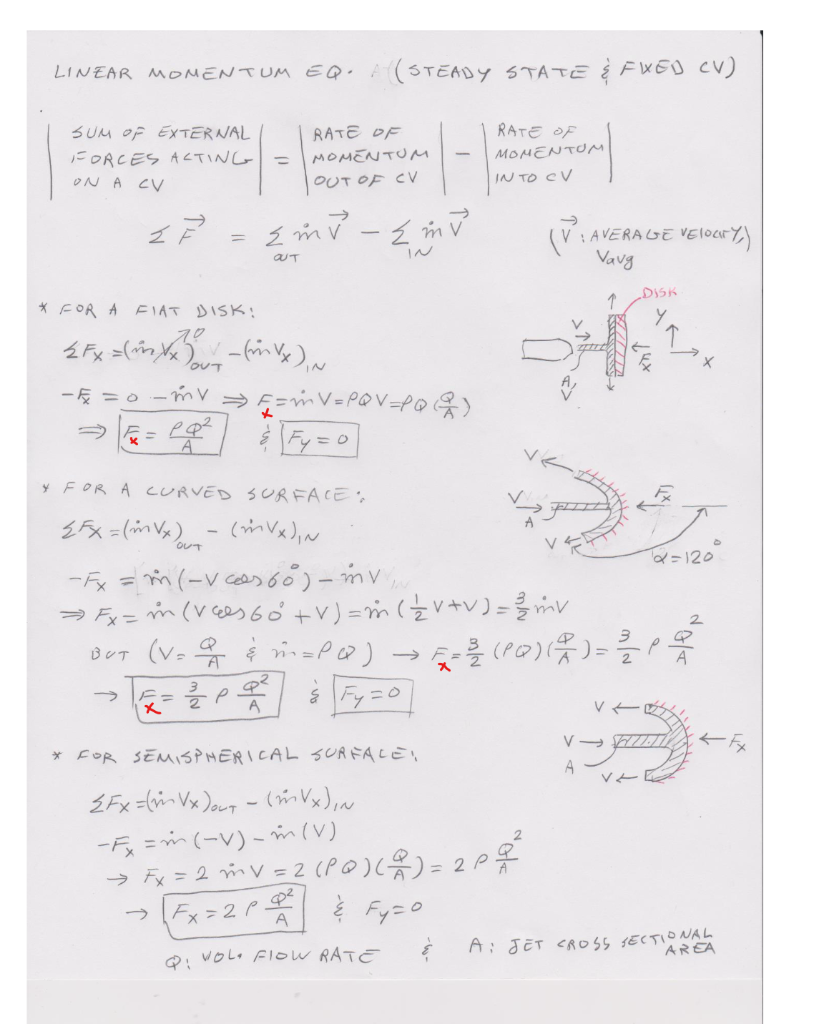 LINEAR MOMENTUM EQ. (STEADY STATE & FIXED CV)
|SUM OF EXTERNAL FORCES ACTING ON A CV| = |RATE OF MOMENTUM OUT OF CV| - |RATE OF MOMENTUM INTO CV|
Σ F⃗ = Σ_OUT ṁ V⃗ - Σ_IN ṁ V⃗ (V⃗ : AVERAGE VELOCITY, Vavg)
* FOR A FlAT DISK:
DISK
V
A, V
Fx
Y
X
ΣFx = (ṁVx)OUT →0 - (ṁVx)IN
-Fx = 0 - ṁV ⇒ Fx = ṁV = ρQV = ρQ(Q/A)
⇒ Fx = ρQ²/A & Fy = 0
* FOR A CURVED SURFACE:
V
V
A
V
Fx
α = 120°
ΣFx = (ṁVx)OUT - (ṁVx)IN
-Fx = ṁ(-V cos60°) - ṁV
⇒ Fx = ṁ(V cos60° + V) = ṁ(1/2 V + V) = 3/2 ṁV
BUT (V = Q/A & ṁ = ρQ) → Fx = 3/2 (ρQ)(Q/A) = 3/2 ρ Q²/A
→ Fx = 3/2 ρ Q²/A & Fy = 0
* FOR SEMISPHERICAL SURFACE:
V
V
A
V
Fx
ΣFx = (ṁVx)OUT - (ṁVx)IN
-Fx = ṁ(-V) - ṁ(V)
→ Fx = 2 ṁV = 2 (ρQ)(Q/A) = 2 ρ Q²/A
→ Fx = 2 ρ Q²/A & Fy = 0
Q: VOL. FLOW RATE & A: JET CROSS SECTIONAL AREA